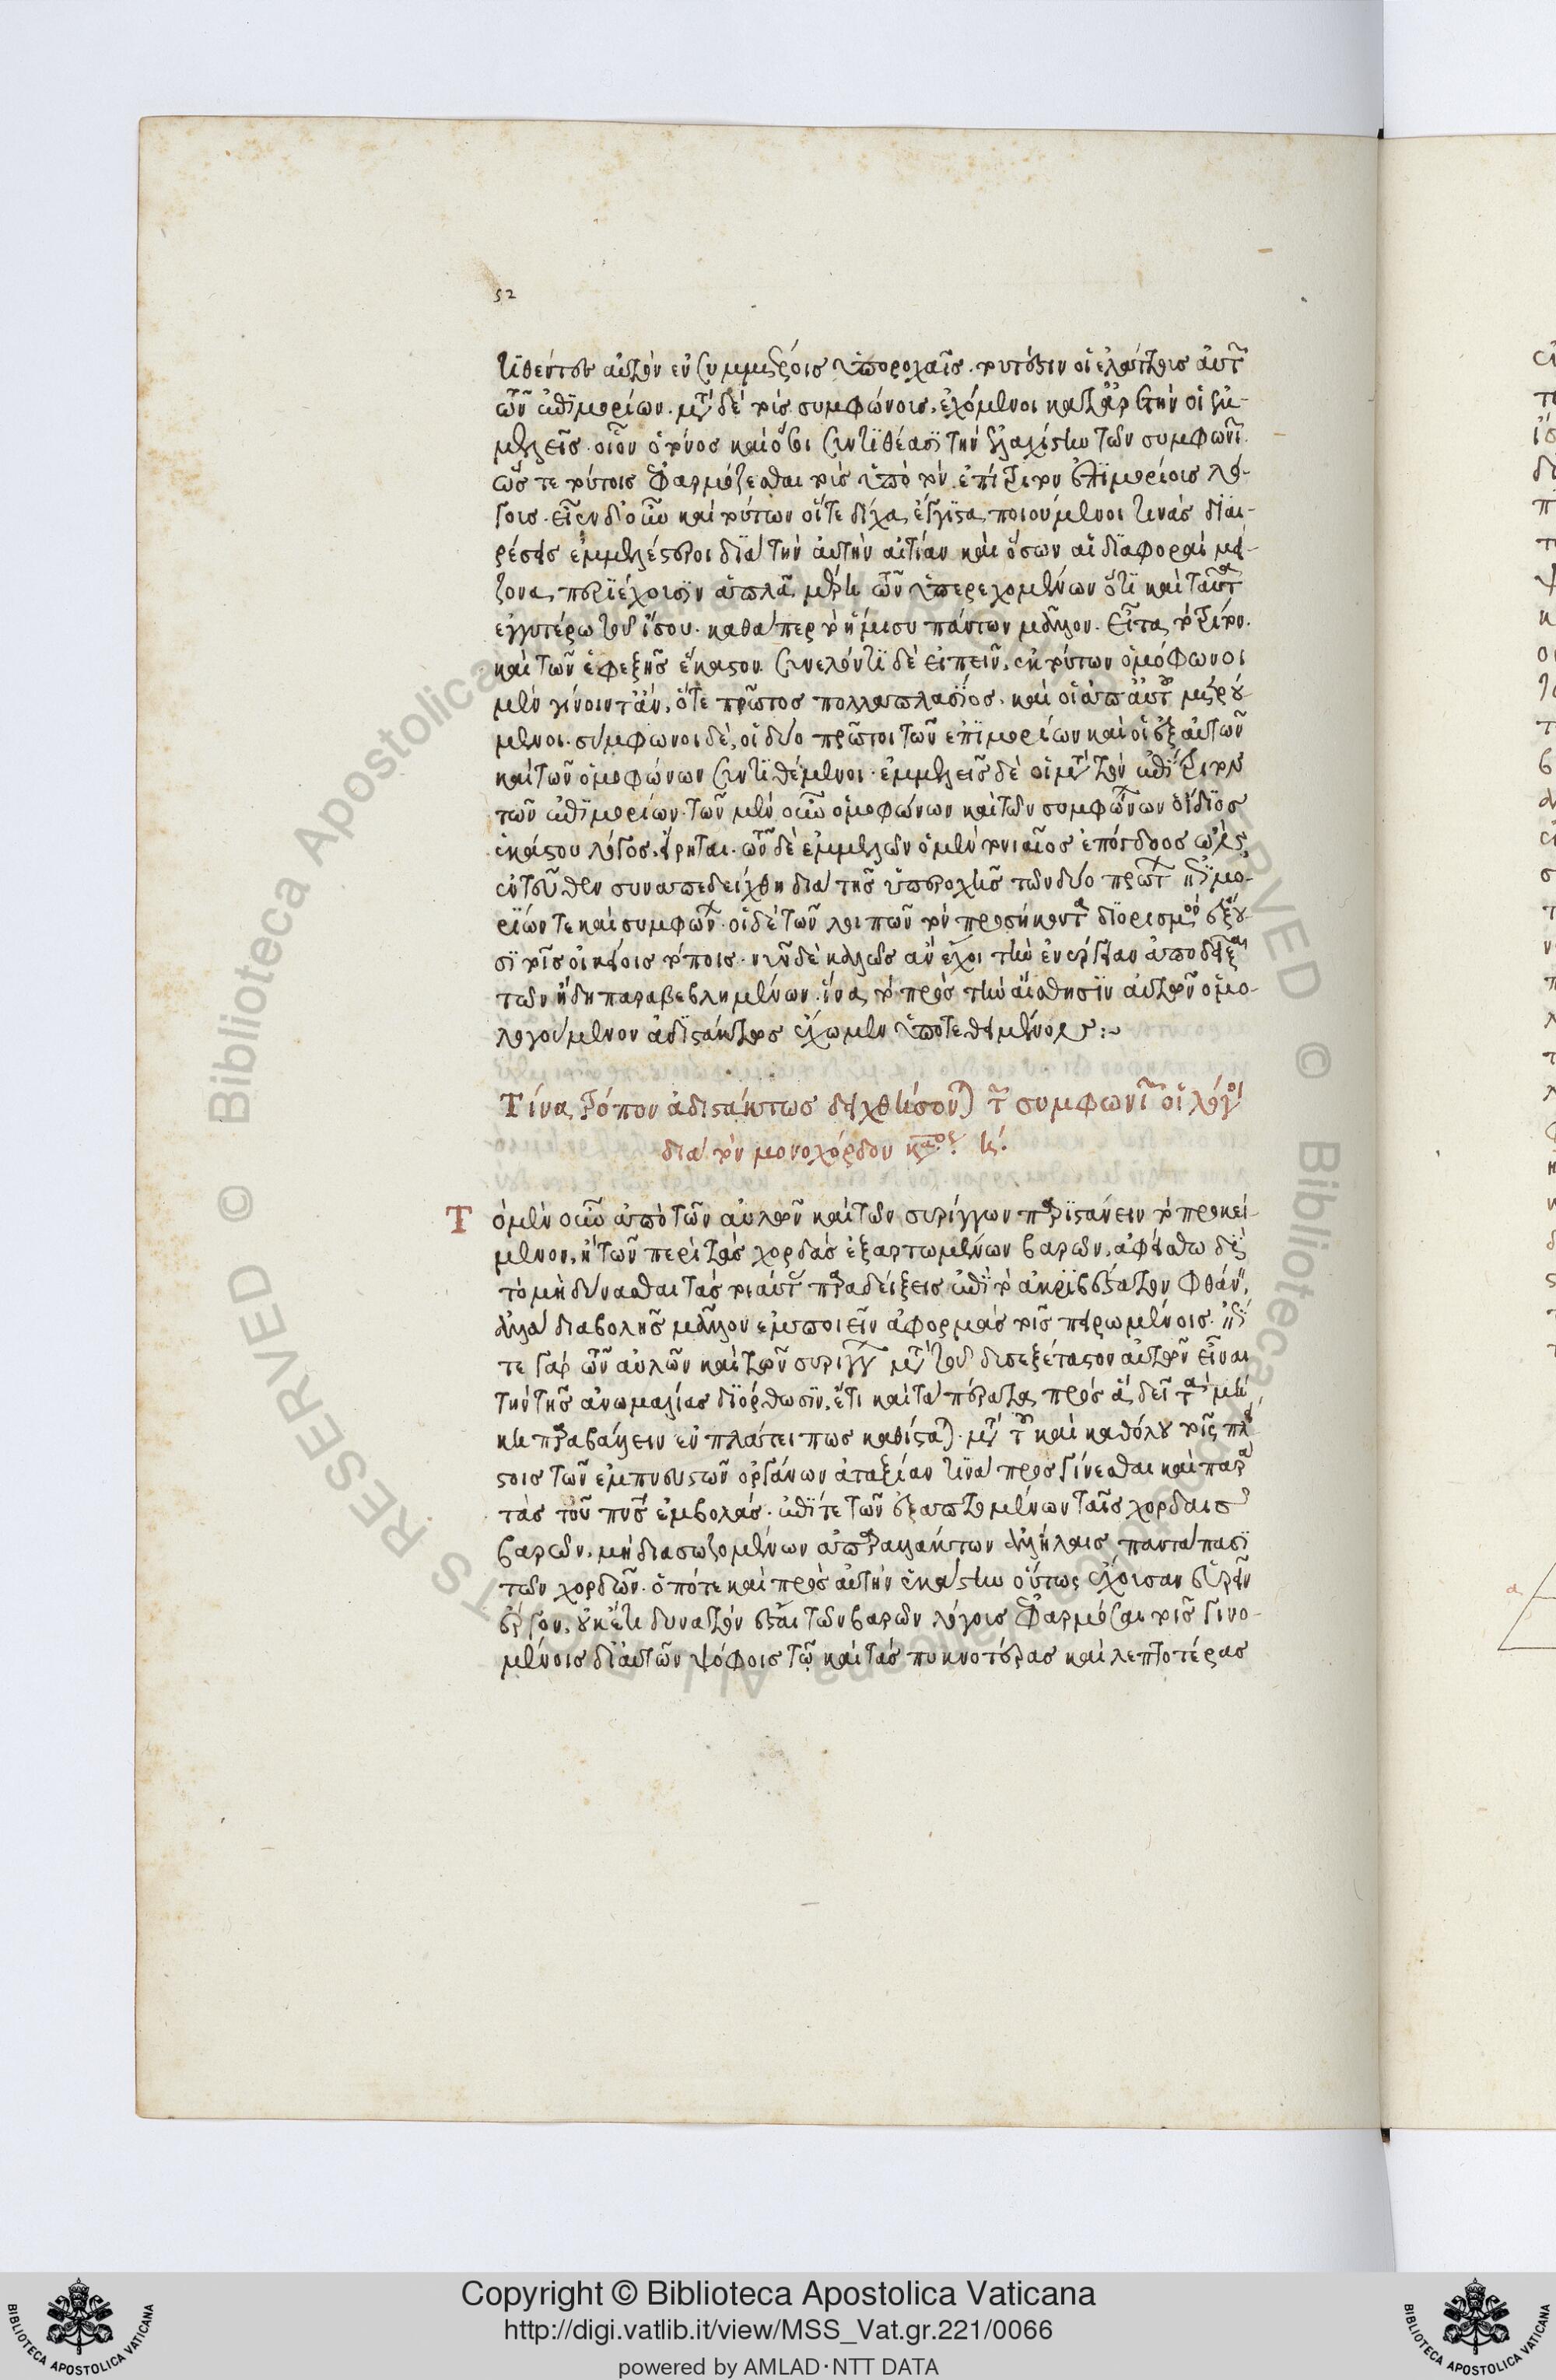 52
τιθέντες αὐτὸν ἐν συμμέτροις ὑπεροχαῖς. τουτέστιν οἱ ἐλάττους αὐτ
τῶν ἐπιμορίων. μετὰ δὲ τοὺς συμφώνους, ἐχόμενοι κατ' ἀρετὴν οἱ ἐμ-
μελεῖς. οἷον ὁ τόνος καὶ ὅσοι συντιθέασι τὴν ἐλαχίστην τῶν συμφωνιῶν.
ὥστε τούτοις ἐφαρμόζεσθαι τοὺς ὑπὸ τὸν ἐπίτριτον ἐπιμορίοις λό-
γοις. εἶεν δ' οὖν καὶ τούτων οἵτε δίχα, ἔγγιστα, ποιούμενοι τινὰς διαι-
ρέσεις ἐμμελέστεροι διὰ τὴν αὐτὴν αἰτίαν καὶ ὅσων αἱ διαφοραὶ μεί-
ζονα, περιέχουσιν ἁπλᾶ μέρη τῶν ὑπερεχομένων ὅτι καὶ ταῦτα
ἐγγυτέρω τοῦ ἴσου. καθάπερ τὸ ἥμισυ πάντων μᾶλλον. εἶτα, τὸ τρίτον.
καὶ τῶν ἐφεξῆς ἕκαστον. συνελόντι δὲ εἰπεῖν, ἐκ τούτων ὁμόφωνοι
μὲν γίνοιντ' ἄν, ὅτε πρῶτος πολλαπλάσιος. καὶ οἱ ὑπ' αὐτοῦ μετρού
μενοι. σύμφωνοι δέ, οἱ δύο πρῶτοι τῶν ἐπιμορίων καὶ οἱ ἐξ αὐτῶν
καὶ τῶν ὁμοφώνων συντιθέμενοι. ἐμμελεῖς δὲ οἱ μετὰ τὸν ἐπίτριτον
τῶν ἐπιμορίων. τῶν μὲν οὖν ὁμοφώνων καὶ τῶν συμφώνων ὁ ἴδιος
ἑκάστου λόγος, εἴρηται. τῶν δὲ ἐμμελῶν ὁ μὲν τονιαῖος ἐπόγδοος ὤν,
ἐντεῦθεν συναπεδείχθη διὰ τῆς ὑπεροχῆς τῶν δύο πρώτων ἐπιμο-
ρίων τε καὶ συμφώνων. οἱ δὲ τῶν λοιπῶν τὸν προσήκοντα διορισμὸν ἕξου-
σι τοῖς οἰκείοις τόποις. νῦν δὲ καλῶς ἂν ἔχοι τὴν ἐνάργειαν ἀποδεῖξαι
τῶν ἤδη παραβεβλημένων. ἵνα, τὸ πρὸς τὴν αἴσθησιν αὐτῶν ὁμο-
λογούμενον ἀδιστάκτως ἔχωμεν ὑποτεθειμένον:~
Τίνα τρόπον ἀδιστάκτως δειχθήσονται τῶν συμφωνιῶν οἱ λόγοι
διὰ τὸν μονοχόρδου κανόνος. η.
Τ ὸ μὲν οὖν ἀπὸ τῶν αὐλῶν καὶ τῶν συρίγγων παριστάνειν τὸ προκεί-
μενον, ἢ τῶν περὶ τὰς χορδὰς ἐξαρτωμένων βαρῶν, ἀφείσθω διὰ
τὸ μὴ δύνασθαι τὰς τοιαύτας παραδείξεις ἐπὶ τὸ ἀκριβέστατον φθάνειν,
ἀλλὰ διαβολῆς μᾶλλον ἐμποιεῖν ἀφορμὰς τοῖς πειρωμένοις. ἐπί
τε γὰρ τῶν αὐλῶν καὶ τῶν συρίγγων μετὰ τοῦ δυσεξέταστον αὐτῶν εἶναι
τὴν τῆς ἀνωμαλίας διόρθωσιν, ἔτι καὶ τὰ πέρατα, πρὸς ἃ δεῖ τὰ μή
κη παραβάλλειν ἐν πλάτει πως καθίσταται. μετὰ τοῦ καὶ καθόλου τοῖς πλεί
στοις τῶν ἐμπνευστῶν ὀργάνων ἀταξίαν τινὰ προσγίνεσθαι καὶ παρὰ
τὰς τοῦ πνεύματος ἐμβολάς. ἐπί τε τῶν ἐξαπτομένων ταῖς χορδαῖς
βαρῶν, μὴ διασωζομένων ἀπαραλλάκτων ἀλλήλαις πανταπάσι
τῶν χορδῶν. ὁπότε καὶ πρὸς αὑτὴν ἑκάστην οὕτως ἔχουσαν εὑρεῖν
ἔργον, οὐκέτι δυνατὸν ἔσται τῶν βαρῶν λόγοις ἐφαρμόσαι τοῖς γινο-
μένοις δι' αὐτῶν ψόφοις τῷ καὶ τὰς πυκνοτέρας καὶ λεπτοτέρας
Copyright © Biblioteca Apostolica Vaticana
http://digi.vatlib.it/view/MSS_Vat.gr.221/0066
powered by AMLAD·NTT DATA